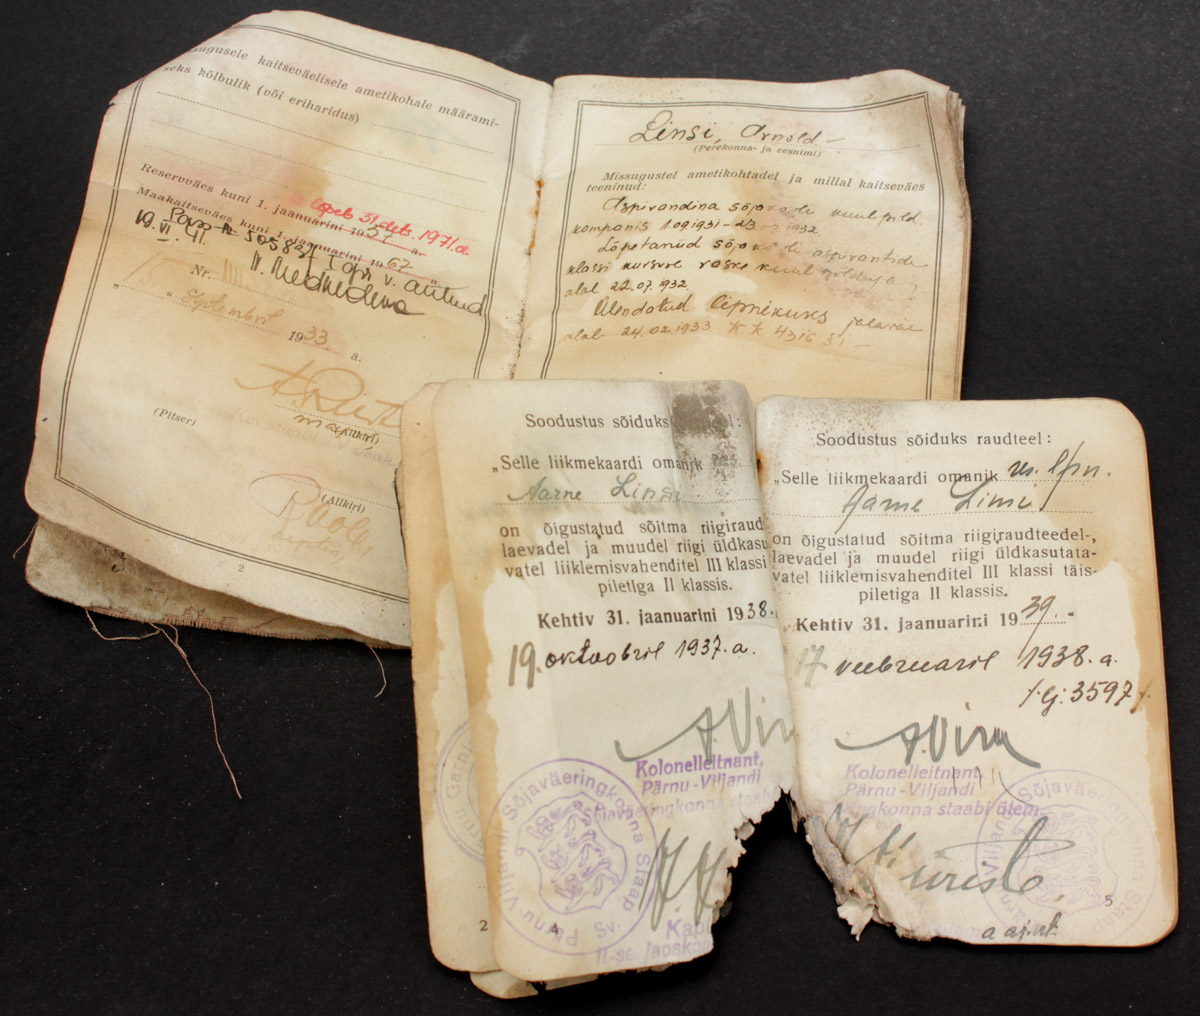 kaitseväelisele ametikohale määrami-
seks kõlbulik (või eriharidus)
Reservväes kuni 1. jaanuarini 1957 a.
lõpeb 31. dets. 1971.a
Maakaitseväes kuni 1. jaanuarini 1967
19. VI. 41.
Nr.
Septembril 1933 a.
(Allkiri)
(Pitser)
(Allkiri)
2
Linsi, Arnold
(Perekonna- ja eesnimi)
Missugustel ametikohtadel ja millal kaitseväes
teeninud:
Aspirandina
kompanis 1.09.1931 – 1932.
Lõpetanud
klassi kursuse raske
alal 22.07.1932.
Ülendatud lipnikuks jalaväe
alal 24.02.1933 K K 4316 §1 –
Soodustus sõiduks
„Selle liikmekaardi omanik
Aarne Linsi
on õigustatud sõitma riigiraud
laevadel ja muudel riigi üldkasu
vatel liiklemisvahenditel III klassi
piletiga II klassis.
Kehtiv 31. jaanuarini 1938.
19. oktoobril 1937. a.
A. Viru
Kolonelleitnant,
Pärnu-Viljandi
Sõjaväeringkonna staabi
Pärnu-Viljandi Sõjaväeringkonna Staap
Sv.
II-se jaoskon
2
4
Soodustus sõiduks raudteel:
„Selle liikmekaardi omanik res. lpn.
Aarne Linsi
on õigustatud sõitma riigiraudteedel-,
laevadel ja muudel riigi üldkasutata-
vatel liiklemisvahenditel III klassi täis-
piletiga II klassis.
Kehtiv 31. jaanuarini 1939. "
17 veebruaril 1938. a.
Lj. 3597
A. Viru
Kolonelleitnant,
Pärnu-Viljandi
ringkonna staabi ülem
5